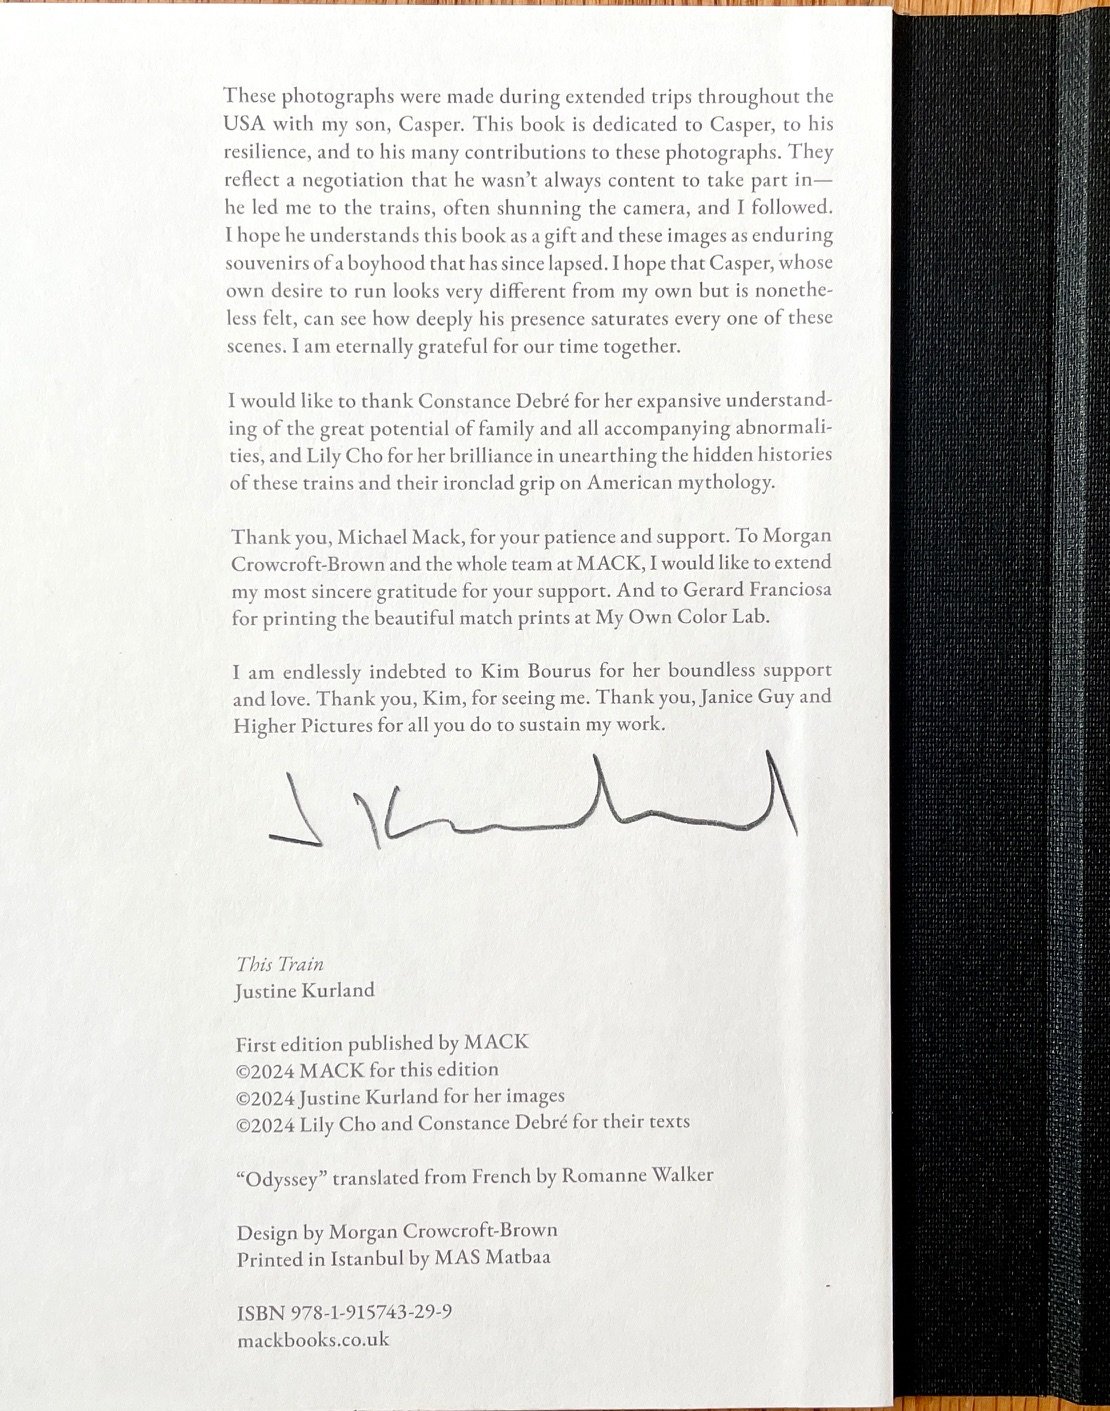 These photographs were made during extended trips throughout the
USA with my son, Casper. This book is dedicated to Casper, to his
resilience, and to his many contributions to these photographs. They
reflect a negotiation that he wasn’t always content to take part in—
he led me to the trains, often shunning the camera, and I followed.
I hope he understands this book as a gift and these images as enduring
souvenirs of a boyhood that has since lapsed. I hope that Casper, whose
own desire to run looks very different from my own but is nonethe-
less felt, can see how deeply his presence saturates every one of these
scenes. I am eternally grateful for our time together.
I would like to thank Constance Debré for her expansive understand-
ing of the great potential of family and all accompanying abnormali-
ties, and Lily Cho for her brilliance in unearthing the hidden histories
of these trains and their ironclad grip on American mythology.
Thank you, Michael Mack, for your patience and support. To Morgan
Crowcroft-Brown and the whole team at MACK, I would like to extend
my most sincere gratitude for your support. And to Gerard Franciosa
for printing the beautiful match prints at My Own Color Lab.
I am endlessly indebted to Kim Bourus for her boundless support
and love. Thank you, Kim, for seeing me. Thank you, Janice Guy and
Higher Pictures for all you do to sustain my work.
J Kurland
This Train
Justine Kurland
First edition published by MACK
©2024 MACK for this edition
©2024 Justine Kurland for her images
©2024 Lily Cho and Constance Debré for their texts
“Odyssey” translated from French by Romanne Walker
Design by Morgan Crowcroft-Brown
Printed in Istanbul by MAS Matbaa
ISBN 978-1-915743-29-9
mackbooks.co.uk